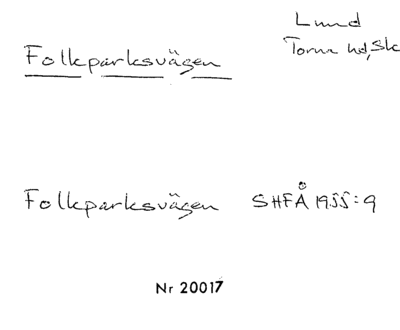 Lund
Torna hd, Sk
Folkparksvägen
Folkparksvägen SHFÅ 1955:9
Nr 20017